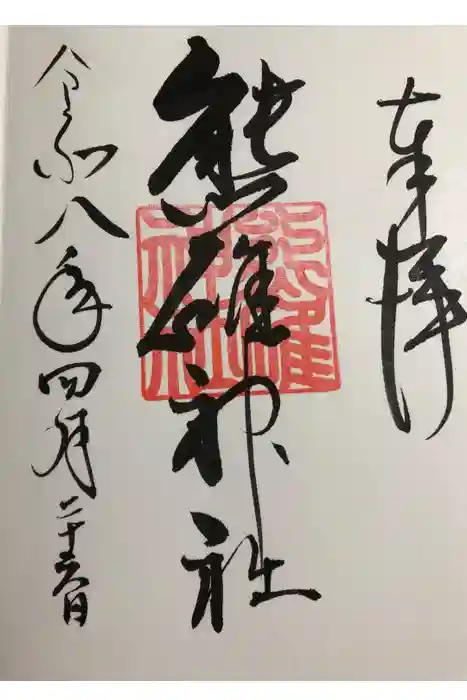 奉拝
熊碓神社
熊碓
神社
令和八年四月二十六日